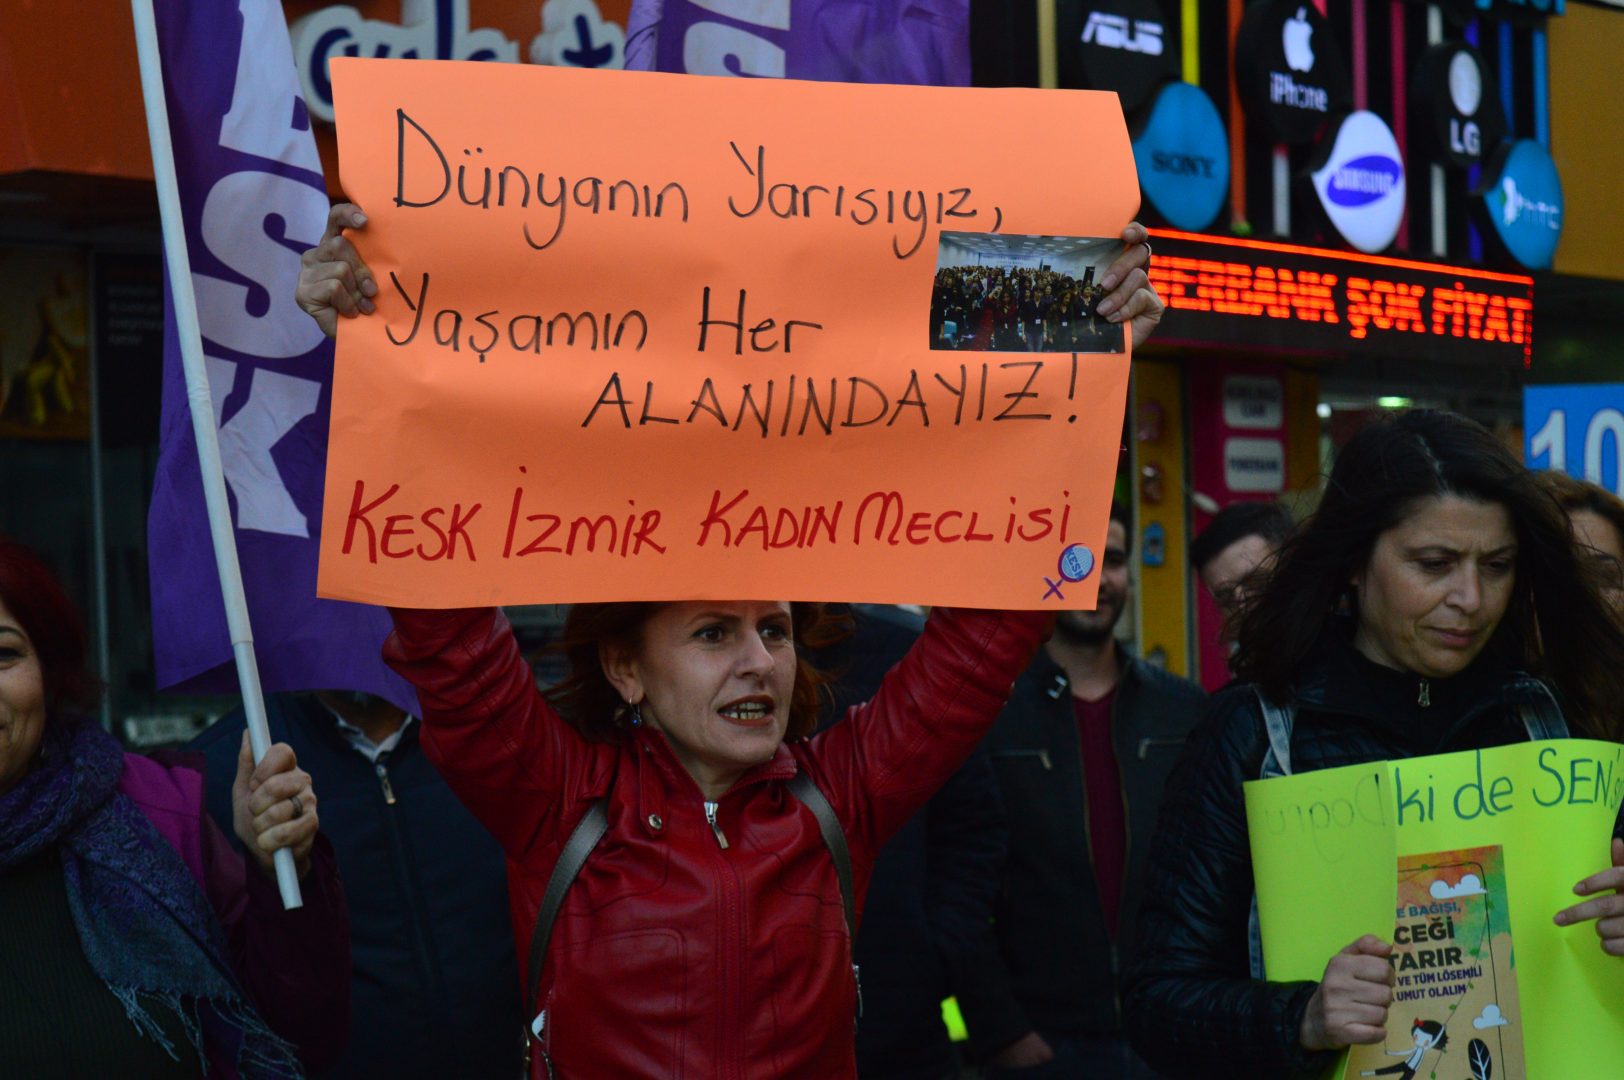 Dünyanın Yarısıyız,
Yaşamın Her
ALANINDAYIZ!
KESK İZMİR KADIN MECLİSİ
KESK
ASUS
iPhone
LG
SONY
SAMSUNG
ERBANK ŞOK FİYAT
10
ki de SEN
E BAĞIŞI,
CEĞİ
TARIR
VE TÜM LÖSEMİLİ
UMUT OLALIM
SK
S